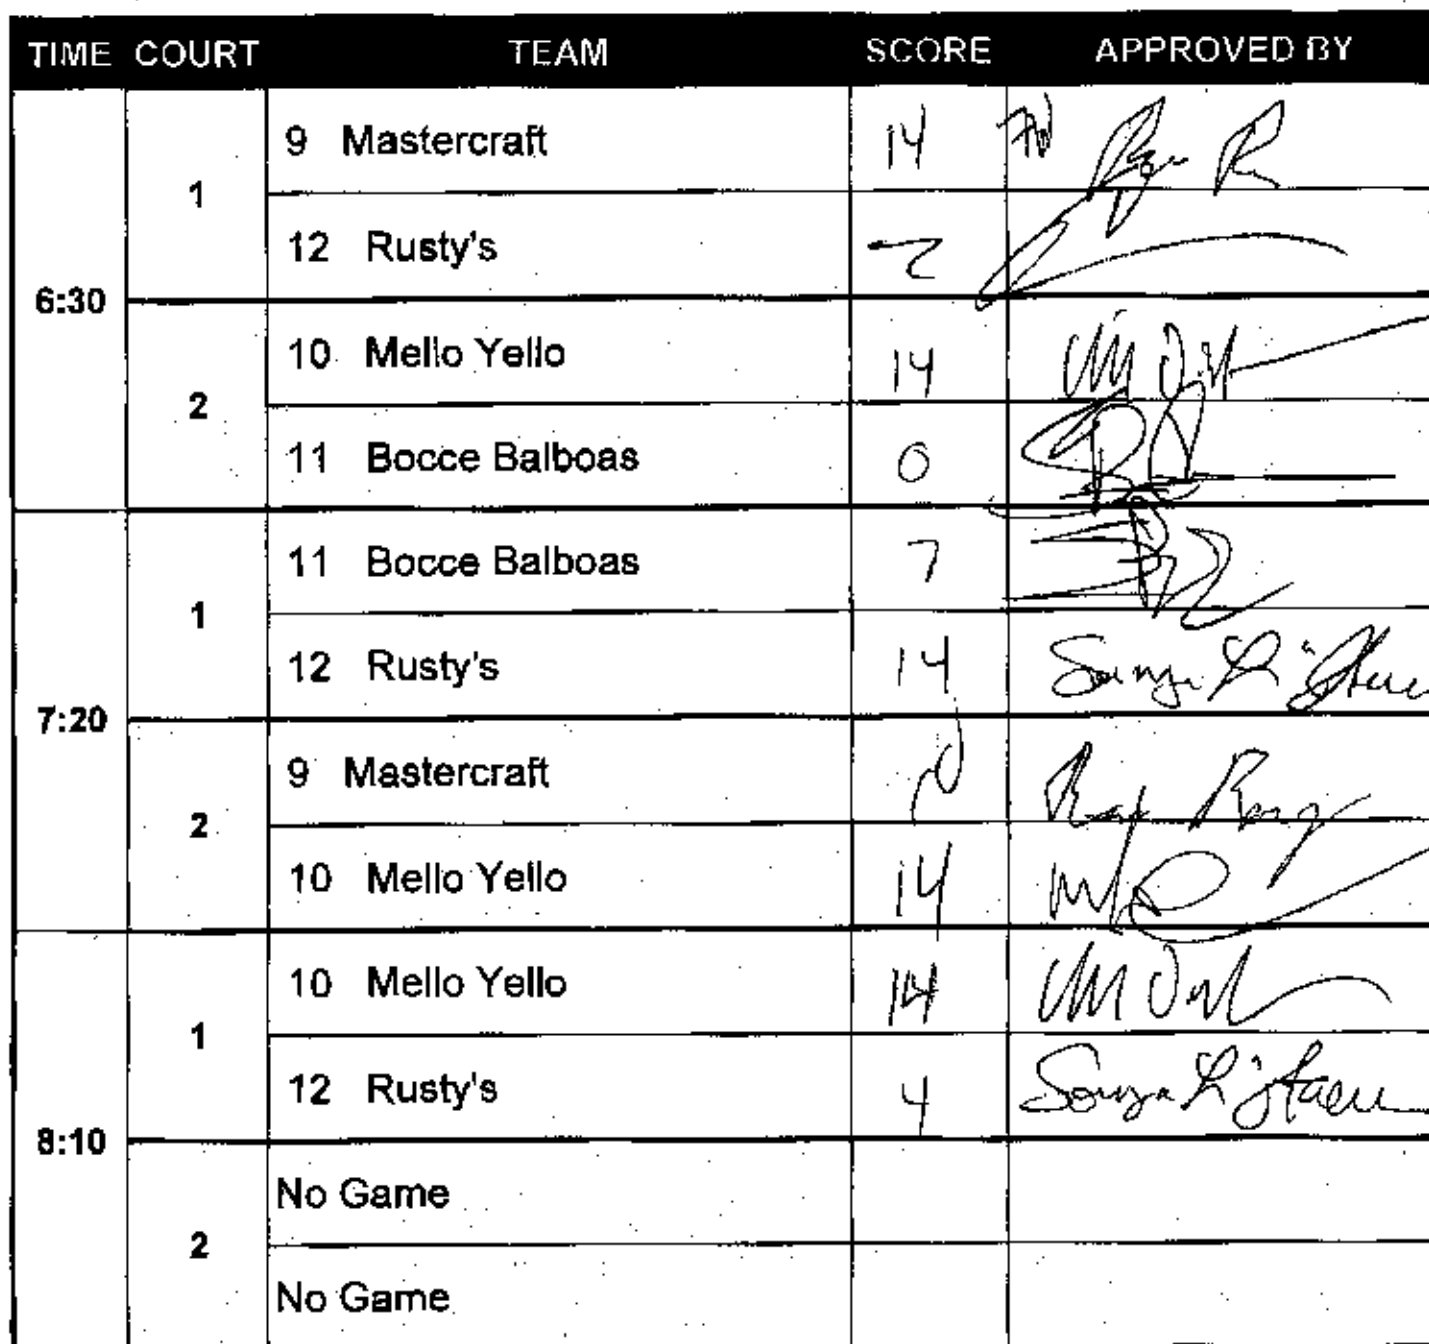 TIME COURT TEAM SCORE APPROVED BY
6:30 1 9 Mastercraft 14
12 Rusty's 2
2 10 Mello Yello 14
11 Bocce Balboas 0
7:20 1 11 Bocce Balboas 7
12 Rusty's 14
2 9 Mastercraft
10 Mello Yello 14
8:10 1 10 Mello Yello 14
12 Rusty's 4
2 No Game
No Game